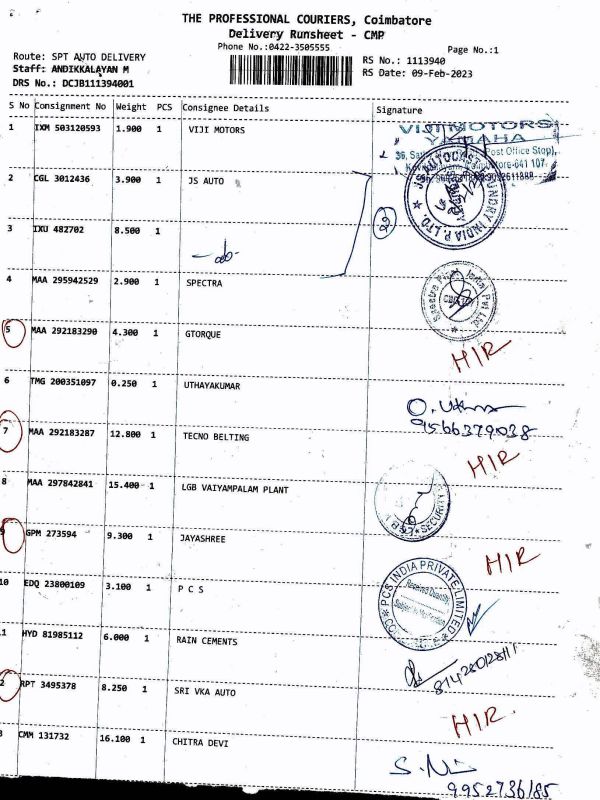 THE PROFESSIONAL COURIERS, Coimbatore
Delivery Runsheet - CMP
Phone No.:0422-3505555
Page No.:1
Route: SPT AUTO DELIVERY
Staff: ANDIKKALAYAN M
DRS No.: DCJB111394001
RS No.: 1113940
RS Date: 09-Feb-2023
S No Consignment No Weight PCS Consignee Details Signature
1 IXM 503120593 1.900 1 VIJI MOTORS
VIJI MOTORS
YAMAHA
2 CGL 3012436 3.900 1 JS AUTO
3 IXU 482702 8.500 1
-do-
4 MAA 295942529 2.900 1 SPECTRA
5 MAA 292183290 4.300 1 GTORQUE
HIR
6 TMG 200351097 0.250 1 UTHAYAKUMAR
9566379038
7 MAA 292183287 12.800 1 TECNO BELTING
HIR
8 MAA 297842841 15.400 1 LGB VAIYAMPALAM PLANT
SECURITY
9 GPM 273594 9.300 1 JAYASHREE
HIR
10 EDQ 23800109 3.100 1 P C S
PCS INDIA PRIVATE LIMITED
Received Quantity
1 HYD 81985112 6.000 1 RAIN CEMENTS
2 RPT 3495378 8.250 1 SRI VKA AUTO
HIR.
3 CMM 131732 16.100 1 CHITRA DEVI
9952736185